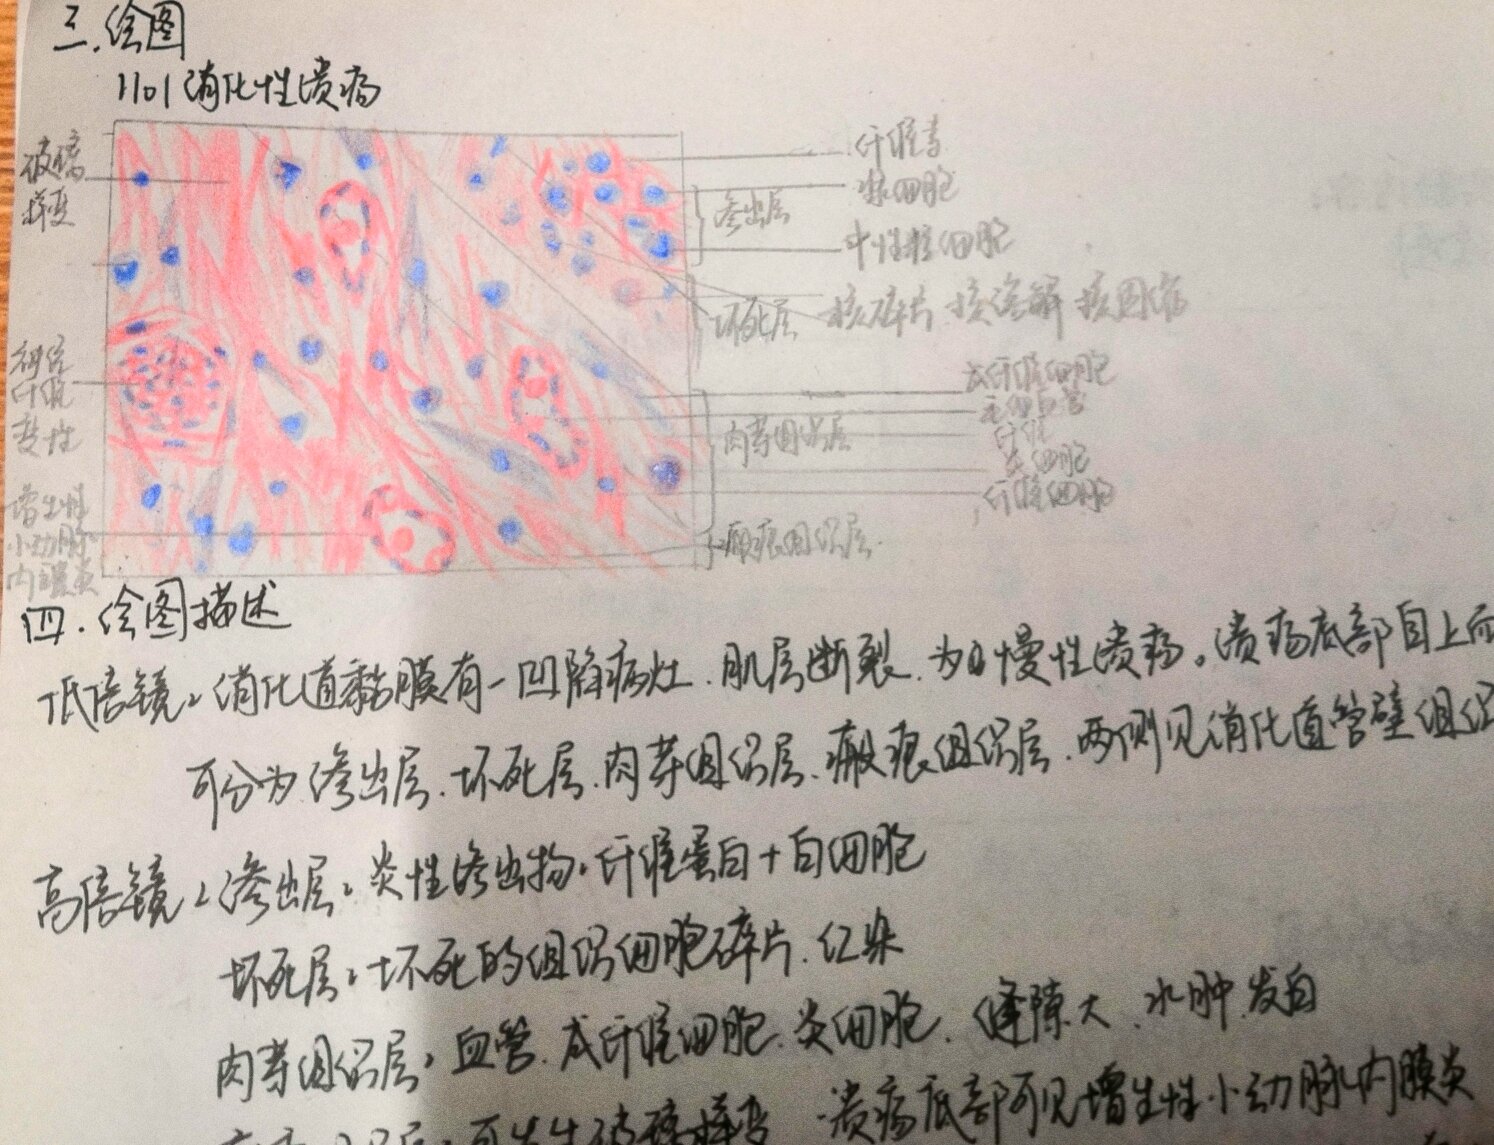 三.绘图
1101消化性溃疡
玻璃
样变
神经
纤维
变性
增生性
小动脉
内膜炎
渗出层
坏死层
肉芽组织层
瘢痕组织层
纤维素
浆细胞
中性粒细胞
核碎片 核溶解 核固缩
成纤维细胞
毛细血管
纤维
炎细胞
纤维细胞
四.绘图描述
低倍镜:消化道黏膜有一凹陷病灶.肌层断裂.为慢性溃疡。溃疡底部自上而
可分为渗出层.坏死层.肉芽组织层.瘢痕组织层.两侧见消化道管壁组织
高倍镜:渗出层:炎性渗出物.纤维蛋白+白细胞
坏死层:坏死的组织细胞碎片.红染
肉芽组织层:血管.成纤维细胞.炎细胞.缝隙大.水肿.发白
可发生玻璃样变.溃疡底部可见增生性小动脉内膜炎